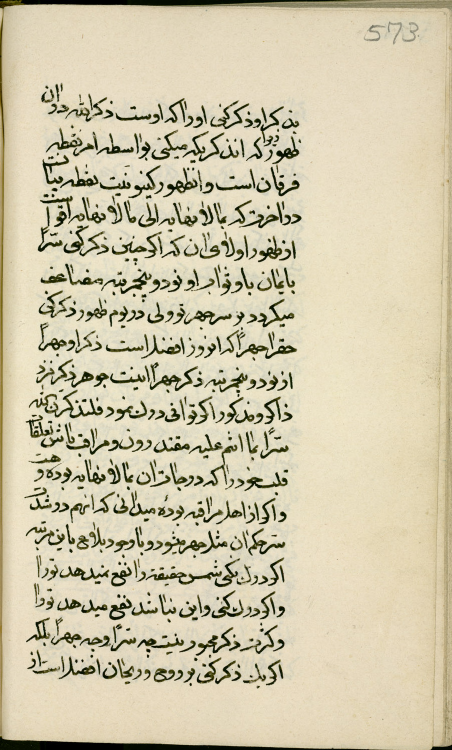 573
بذکر او ذکر کنی او را که اوست ذکر الله در آن
ظهور زیرا که آن ذکریکه میکنی بواسطه امر نقطه
فرقان است و آن ظهور کینونیت نقطه بیان است
در اخرت که بما لا نهایه الی ما لا نهایه اقوی است
از ظهور اولای آن که اگر چنین ذکر کنی سراً
بایمان باو ثواب او نود و پنجمرتبه مضاعف
میگردد بر سر جهر تو ولی در یوم ظهور ذکر کن
حق را جهراً که آنروز افضل است ذکر او جهراً
از نود و پنجمرتبه ذکر جهراً اینست جوهر ذکر نزد
ذاکر و مذکور اگر توانی درک نمود فلتذکرن الله
سراً بما انتم علیه مقتدرون و مراقب باش تعلقات
قلب خود را که درجات آن بما لا نهایه بوده و هست
و اگر از اهل مراقبه بوده میدانی که آنهم در شدت
سر حکم آن مثل جهر میشود و با وجود بلاغ باین مرتبه
اگر درک نکنی شمس حقیقة را نفع نمیدهد تو را
و اگر درک کنی و این نباشد نفع میدهد تو را
و کثرت ذکر محبوب نیست چه سراً و چه جهراً بلکه
اگر یک ذکر کنی بروح و ریحان افضل است از